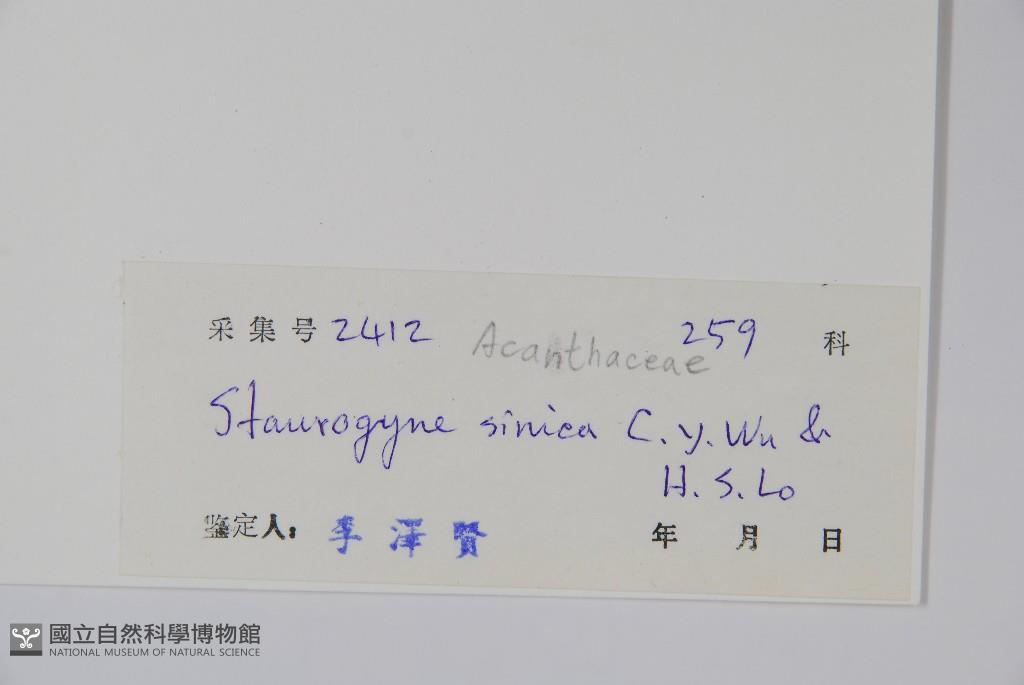 采集号 2412 Acanthaceae 259 科
Staurogyne sinica C. Y. Wu &
H. S. Lo
鉴定人: 李澤賢 年 月 日
國立自然科學博物館
NATIONAL MUSEUM OF NATURAL SCIENCE